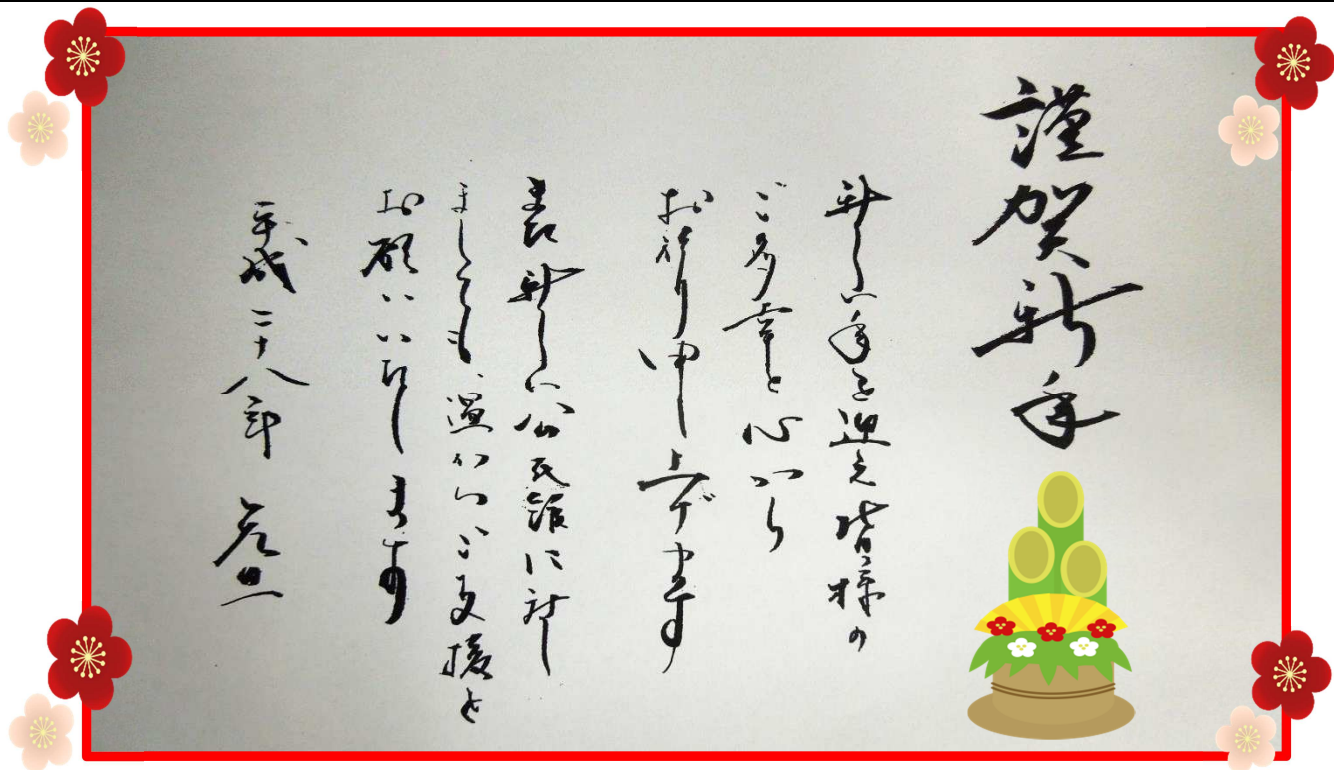 謹賀新年
新しい年を迎え皆様の
ご多幸を心から
お祈り申し上げます
新しい公民館に対し
ましても、温かいご支援を
お願いいたします
平成二十八年 元旦